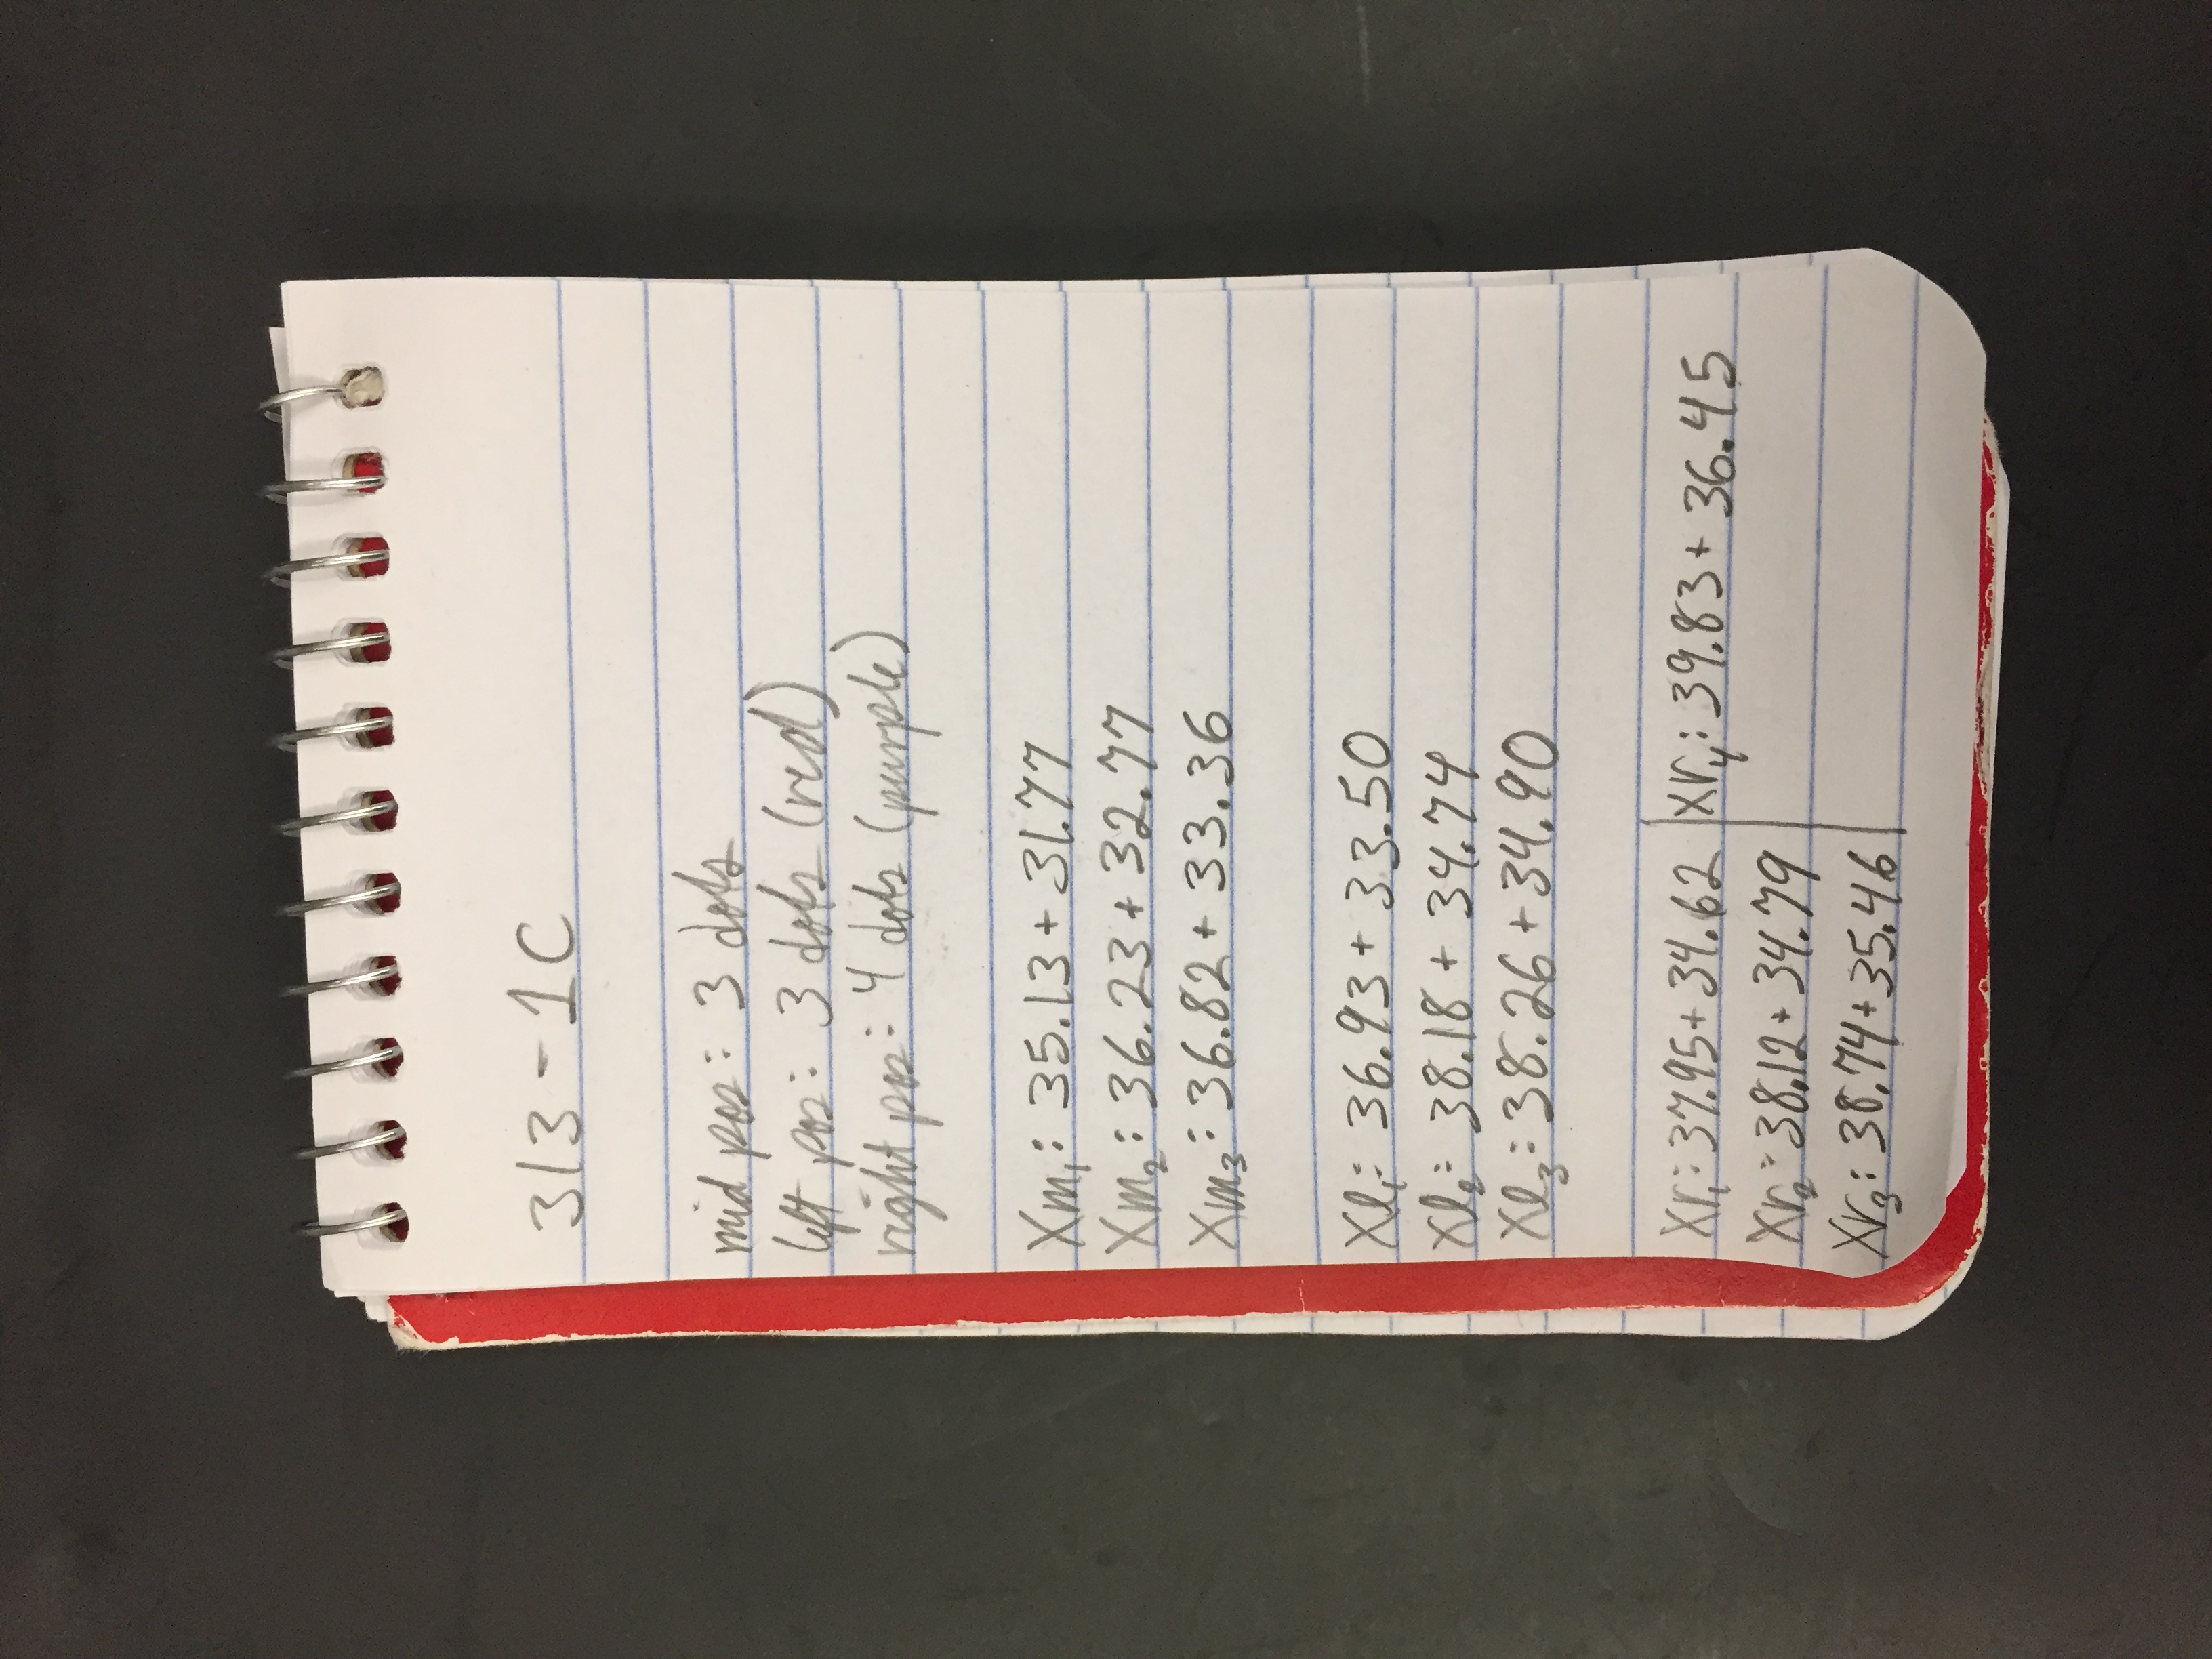 313-1C
mid pos: 3 dots
left pos: 3 dots (red)
right pos: 4 dots (purple)
Xm₁: 35.13 + 31.77
Xm₂: 36.23 + 32.77
Xm₃: 36.82 + 33.36
Xl₁: 36.93 + 33.50
Xl₂: 38.18 + 34.74
Xl₃: 38.26 + 34.90
Xr₁: 37.95 + 34.62
Xr₂: 38.12 + 34.79
Xr₃: 38.74 + 35.46
Xr₄: 39.83 + 36.45